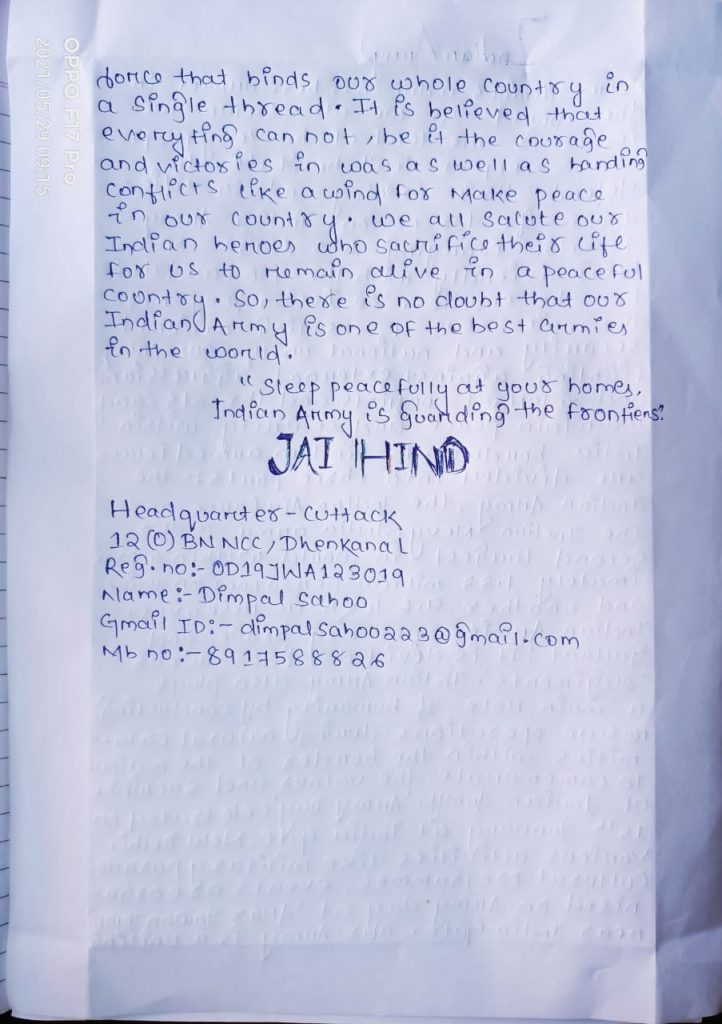 OPPO F17 Pro
2021/05/29 09:15
force that binds our whole country in
a single thread. It is believed that
everyting can not, be it the courage
and victories in was as well as handing
conflicts like a wind for Make peace
in our country. we all salute our
Indian heroes who sacrifice their life
for us to remain alive in a peaceful
country. So, there is no doubt that our
Indian Army is one of the best armies
in the world.
" Sleep peacefully at your homes,
Indian Army is guarding the frontiers."
JAI HIND
Headquarter - Cuttack
12 (O) BN NCC, Dhenkanal
Reg. no:- OD19JWA123019
Name:- Dimpal Sahoo
Gmail ID:- dimpalsahoo223@gmail.com
Mb no:- 8917588826